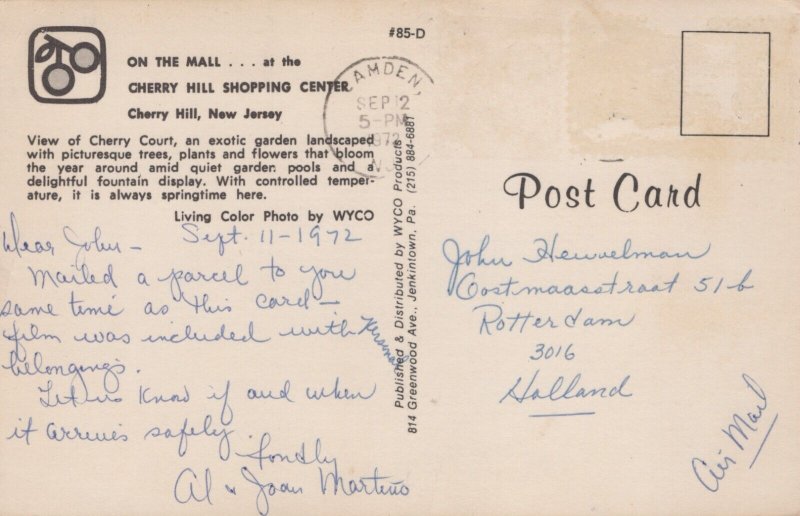 #85-D
ON THE MALL . . . at the
CHERRY HILL SHOPPING CENTER
Cherry Hill, New Jersey
View of Cherry Court, an exotic garden landscaped
with picturesque trees, plants and flowers that bloom
the year around amid quiet garden pools and a
delightful fountain display. With controlled temper-
ature, it is always springtime here.
Living Color Photo by WYCO
CAMDEN,
SEP 12
5-PM
1972
Sept. 11-1972
Dear John-
Mailed a parcel to you
same time as this card-
film was included with
belongings.
Let us know if and when
it arrives safely.
fondly
Al & Joan Martino
Published & Distributed by WYCO Products
814 Greenwood Ave., Jenkintown, Pa. (215) 884-6881
Post Card
John Heuvelman
Oostmaasstraat 51-b
Rotterdam
3016
Holland
Air Mail